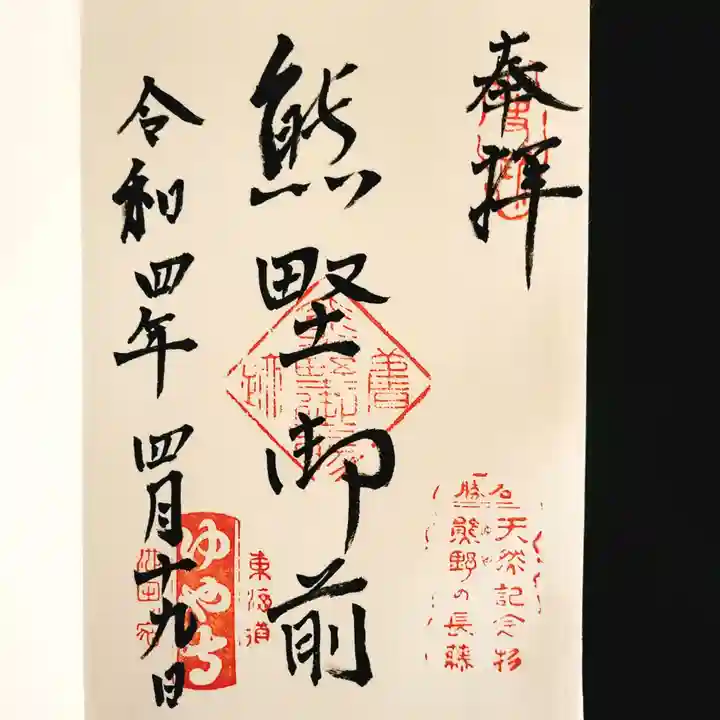 奉拝
天然記念物
熊野の長藤
熊野御前
東海道
ゆや寺
池田宿
令和四年四月十九日